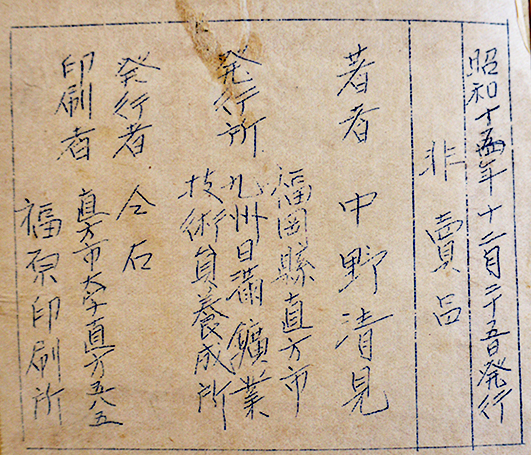 昭和十五年十二月二十五日発行
非賣品
著者 中野清見
発行所 福岡縣直方市
九州日満鑛業
技術員養成所
発行者 仝右
印刷者 直方市大字直方五八五
福原印刷所